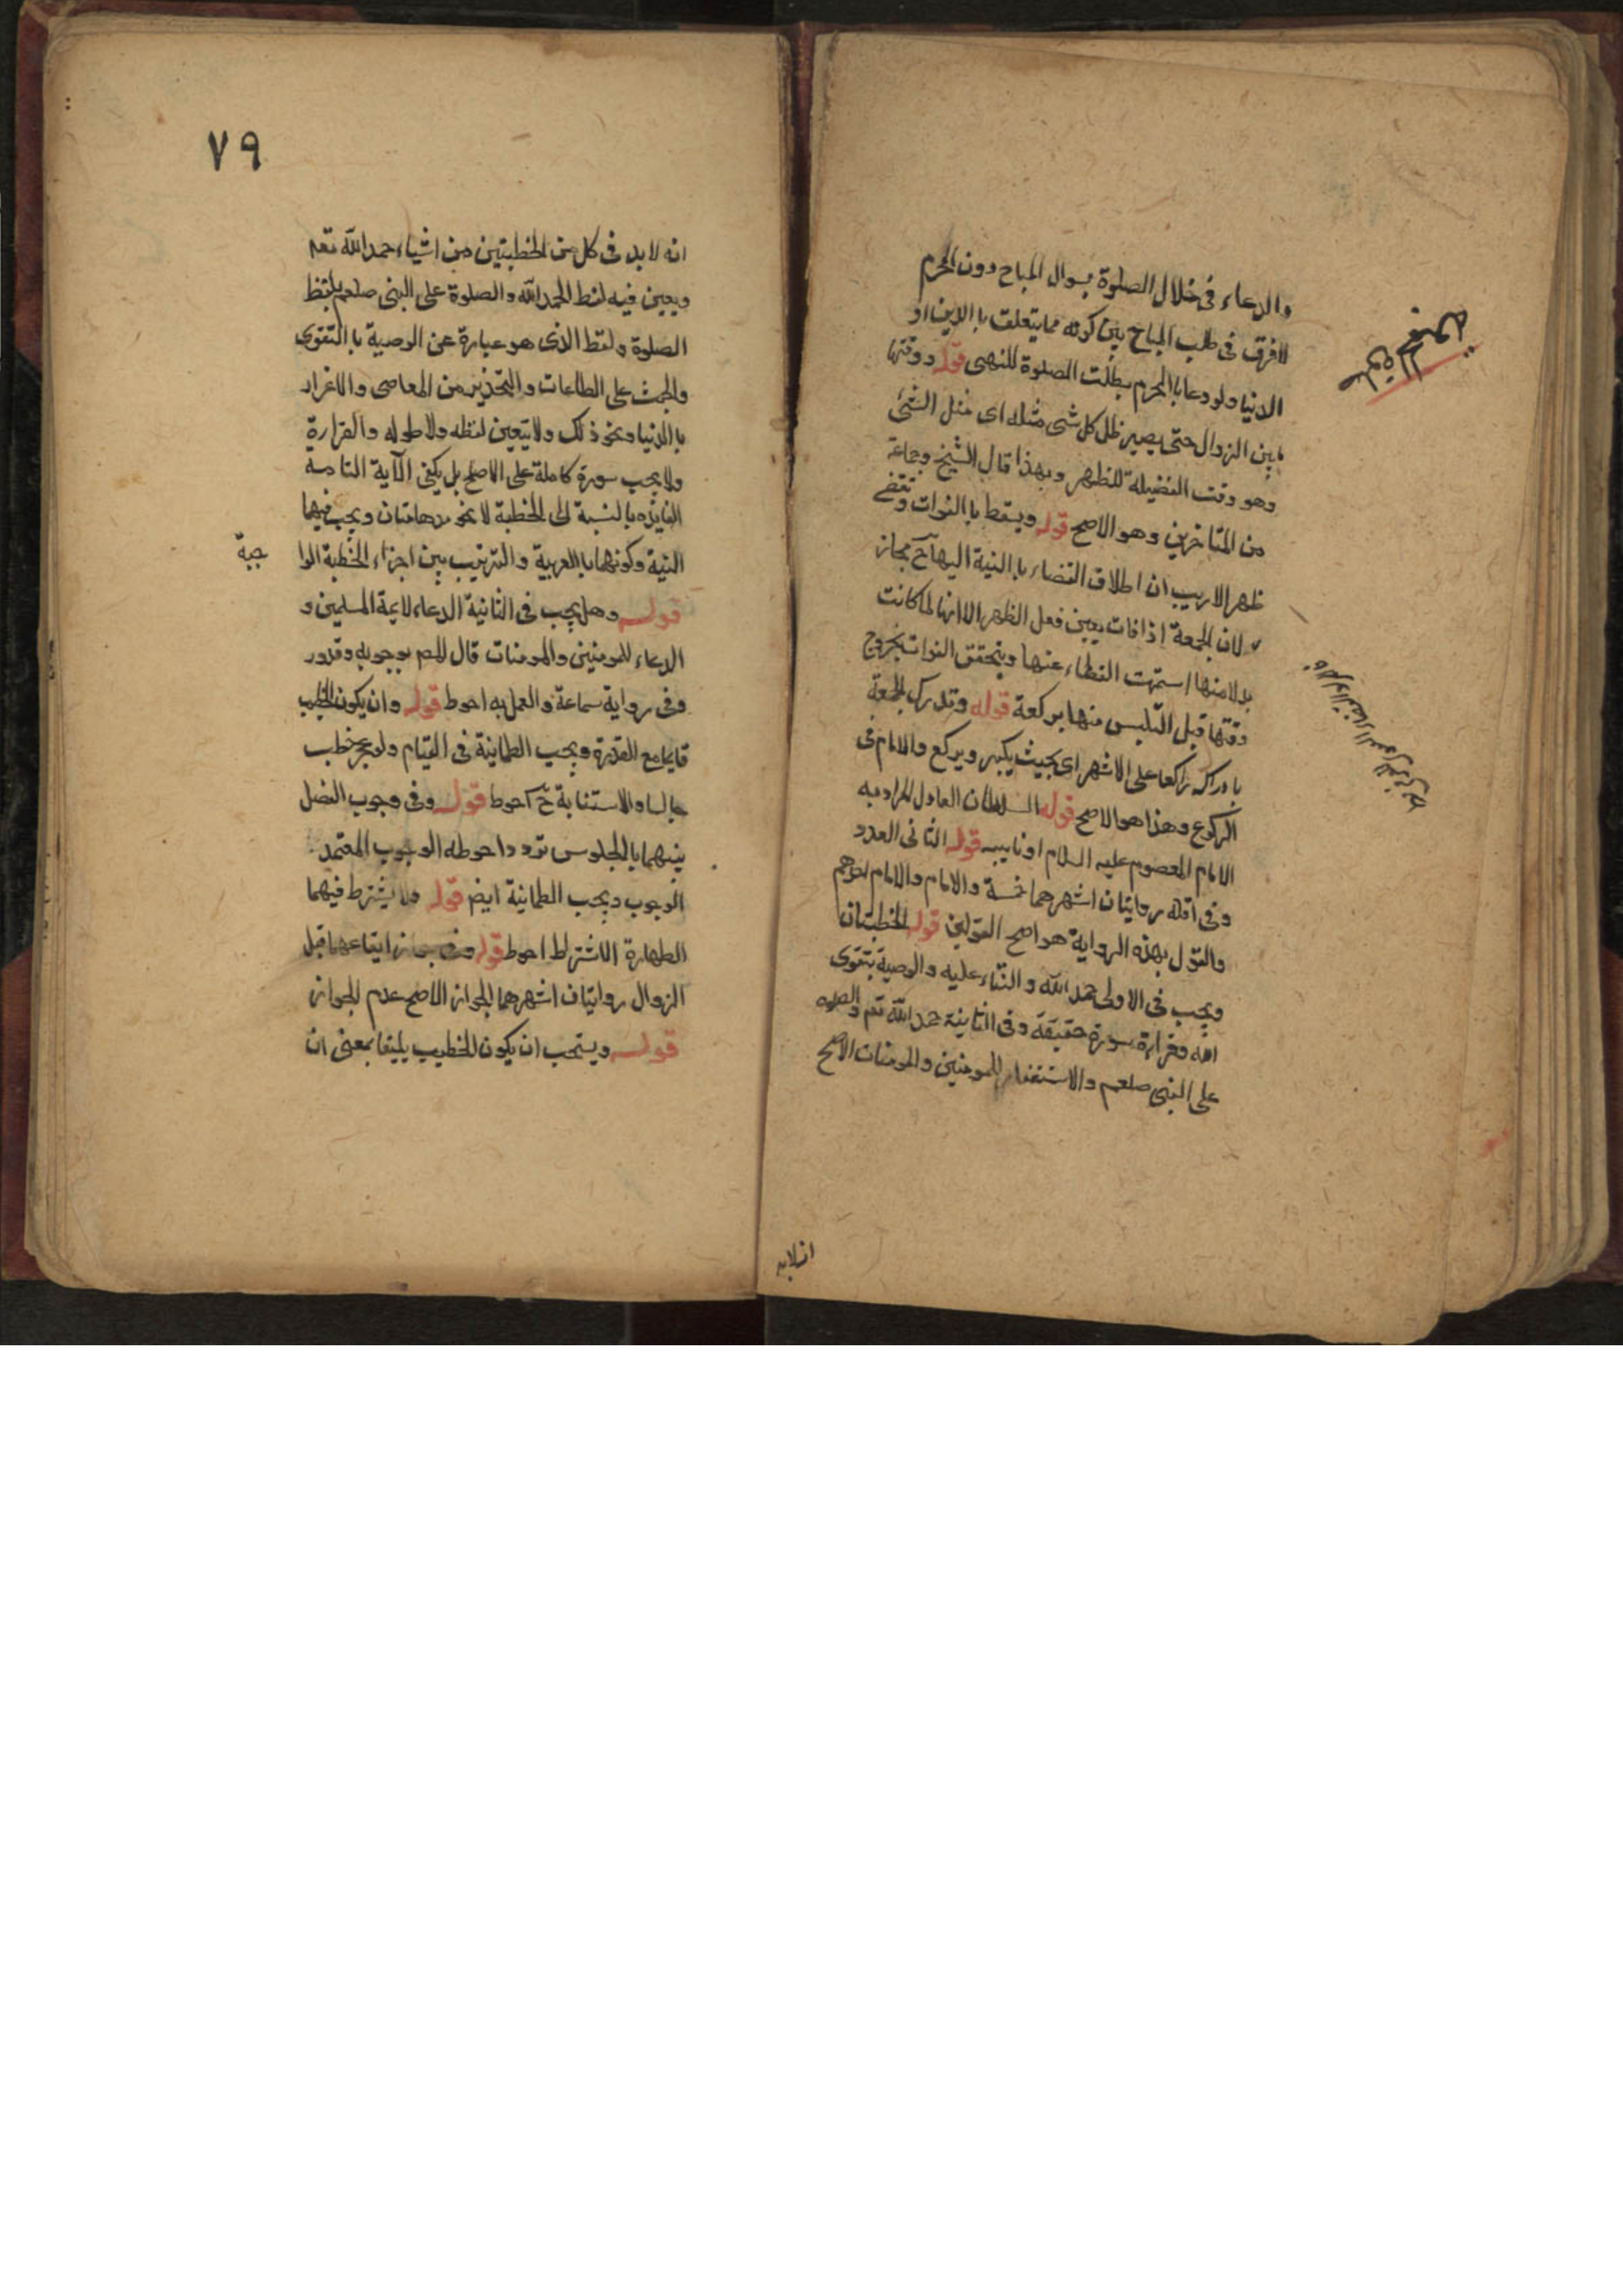 والدعاء في خلال الصلوة بسوال المباح دون المحرم
لافرق في طلب المباح بين كونه مما يتعلق با الدين او
الدنيا ولو دعا با المحرم بطلت الصلوة للنهى قوله ووقتها
ما بين الزوال حتى يصير ظل كل شى مثله اى مثل الشئ
وهو وقت الفضيلة للظهر وبهذا قال الشيخ وجماعة
من المتاخرين وهو الاصح قوله ويسقط با الفوات وتقضى
ظهرا لاريب ان اطلاق القضاء با النية اليها ح مجاز
لان الجمعة اذا فات يعين فعل الظهر الا انها لما كانت
بدلا منها استمرت القطاء عنها ويتحقق الفوات بخروج
وقتها قبل التلبس منها بركعة قوله وتدرك الجمعة
با دراكه راكعا على الاشهر اى بحيث يكبر ويركع والامام فى
الركوع وهذا هو الاصح قوله السلطان العادل المراد به
الامام المعصوم عليه السلام او نايبه قوله الثانى العدد
وفى اقله روايتان اشهرهما خمسة والامام والامام احدهم
والقول بهذه الرواية هو اصح القولين قوله الخطبتان
ويجب فى الاولى حمد الله والثناء عليه والوصية بتقوى
الله وقراءة سورة حقيقة وفى الثانية حمد الله تعم والصلوة
على النبى صلعم والاستغفار للمومنين والمومنات الاصح
صلوة الجمعة
انه لابد
٧٩
انه لابد فى كل من الخطبتين من اشياء حمد الله تعم
ويعين فيه لفظ الحمد الله والصلوة على النبى صلعم بلفظ
الصلوة ولفظ الذى هو عبارة عن الوصية با التقوى
والحث على الطاعات والتحذير من المعاصى والاغرار
با الدنيا ونحو ذلك ولا يتعين لفظه ولا طوله والقرارة
ولا يجب سورة كاملة على الاصح بل يكفى الآية التامه
الفايده با لنسبة الى الخطبة لا نحو مدهامتان ويجب فيهما
النية وكونها با العربية والترتيب بين اجزاء الخطبة الوا
جبة
قوله وهل يجب فى الثانية الدعاء لائمة المسلمين و
الدعاء للمومنين والمومنات قال المص بوجوبه وقدور
وفى رواية سماعة والعمل به احوط قوله وان يكون الخطيب
قايما مع القدرة ويجب الطمانينة فى القيام ولو عجز خطب
جالسا والاستنابة ح احوط قوله وفى وجوب الفصل
بينهما با لجلوس تردد احوطه الوجوب المعتمد
الوجوب ويجب الطمانية ايض قوله ولا يشترط فيهما
الطهارة الاشتراط احوط قوله وفى جواز ايقاعها قبل
الزوال روايتان اشهرهما الجواز الاصح عدم الجواز
قوله ويستحب ان يكون الخطيب بليغا بمعنى ان